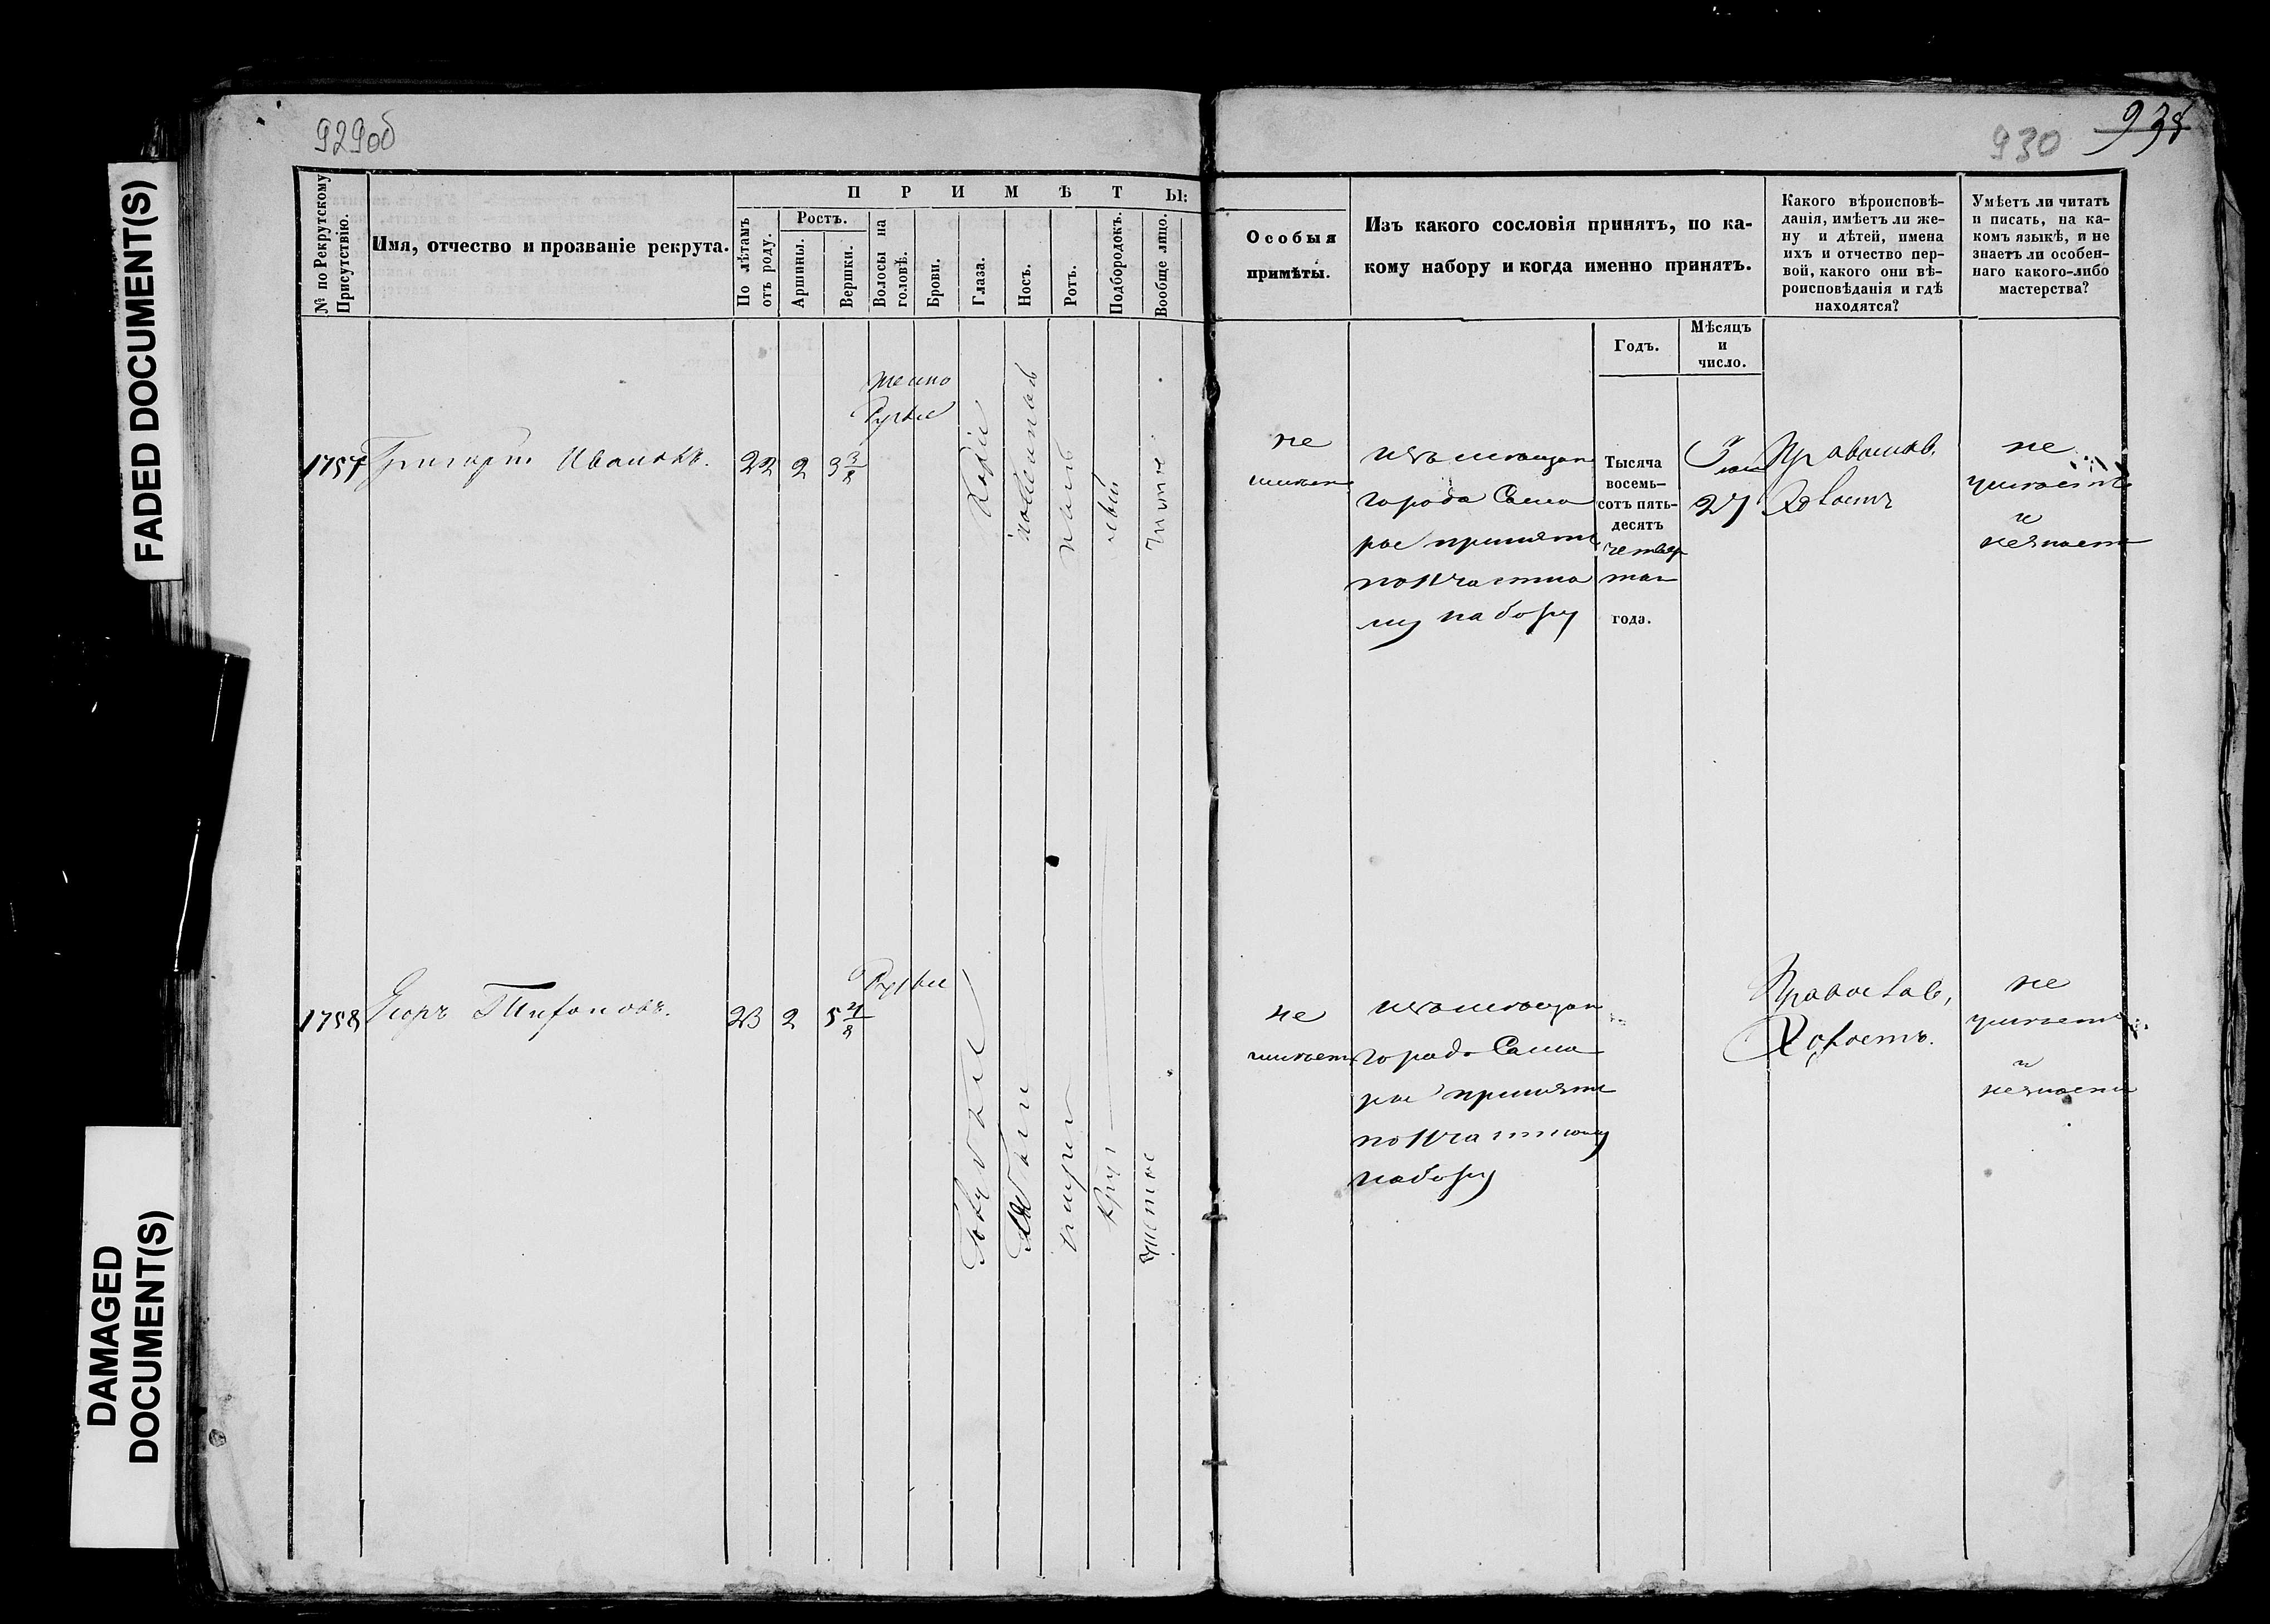 FADED DOCUMENT(S)
DAMAGED
DOCUMENT(S)
929об
№ по Рекрутскому
Присутствію.
Имя, отчество и прозваніе рекрута.
ПРИМѢТЫ:
По лѣтамъ
отъ роду.
Ростъ.
Аршины.
Вершки.
Волосы на
головѣ.
Брови.
Глаза.
Носъ.
Ротъ.
Подбородокъ.
Вообще лицо.
1757
Григорій Ивановъ.
22
2
3 3/8
темно
Русые
Каріе
чистое
1758
Егоръ
23
2
5 4/8
Русые
Голубые
круг
чистое
930
Особыя
примѣты.
Изъ какого сословія принятъ, по ка-
кому набору и когда именно принятъ.
Годъ.
Мѣсяцъ
и
число.
Какого вѣроисповѣ-
данія, имѣетъ ли же-
ну и дѣтей, имена
ихъ и отчество пер-
вой, какого они вѣ-
роисповѣданія и гдѣ
находятся?
Умѣетъ ли читать
и писать, на ка-
комъ языкѣ, и не
знаетъ ли особен-
наго какого-либо
мастерства?
не
имѣетъ
изъ мѣщан
города Сама
ры принятъ
по частно
му набору
Тысяча
восемь-
сотъ пять-
десятъ
четвер
таго
года.
27
Православ.
Холостъ
не
умѣетъ
и
незнаетъ
не
имѣетъ
изъ мѣщан
города Сама
ры принятъ
по частному
набору
Православ,
Холостъ.
не
умѣетъ
и
незнаетъ